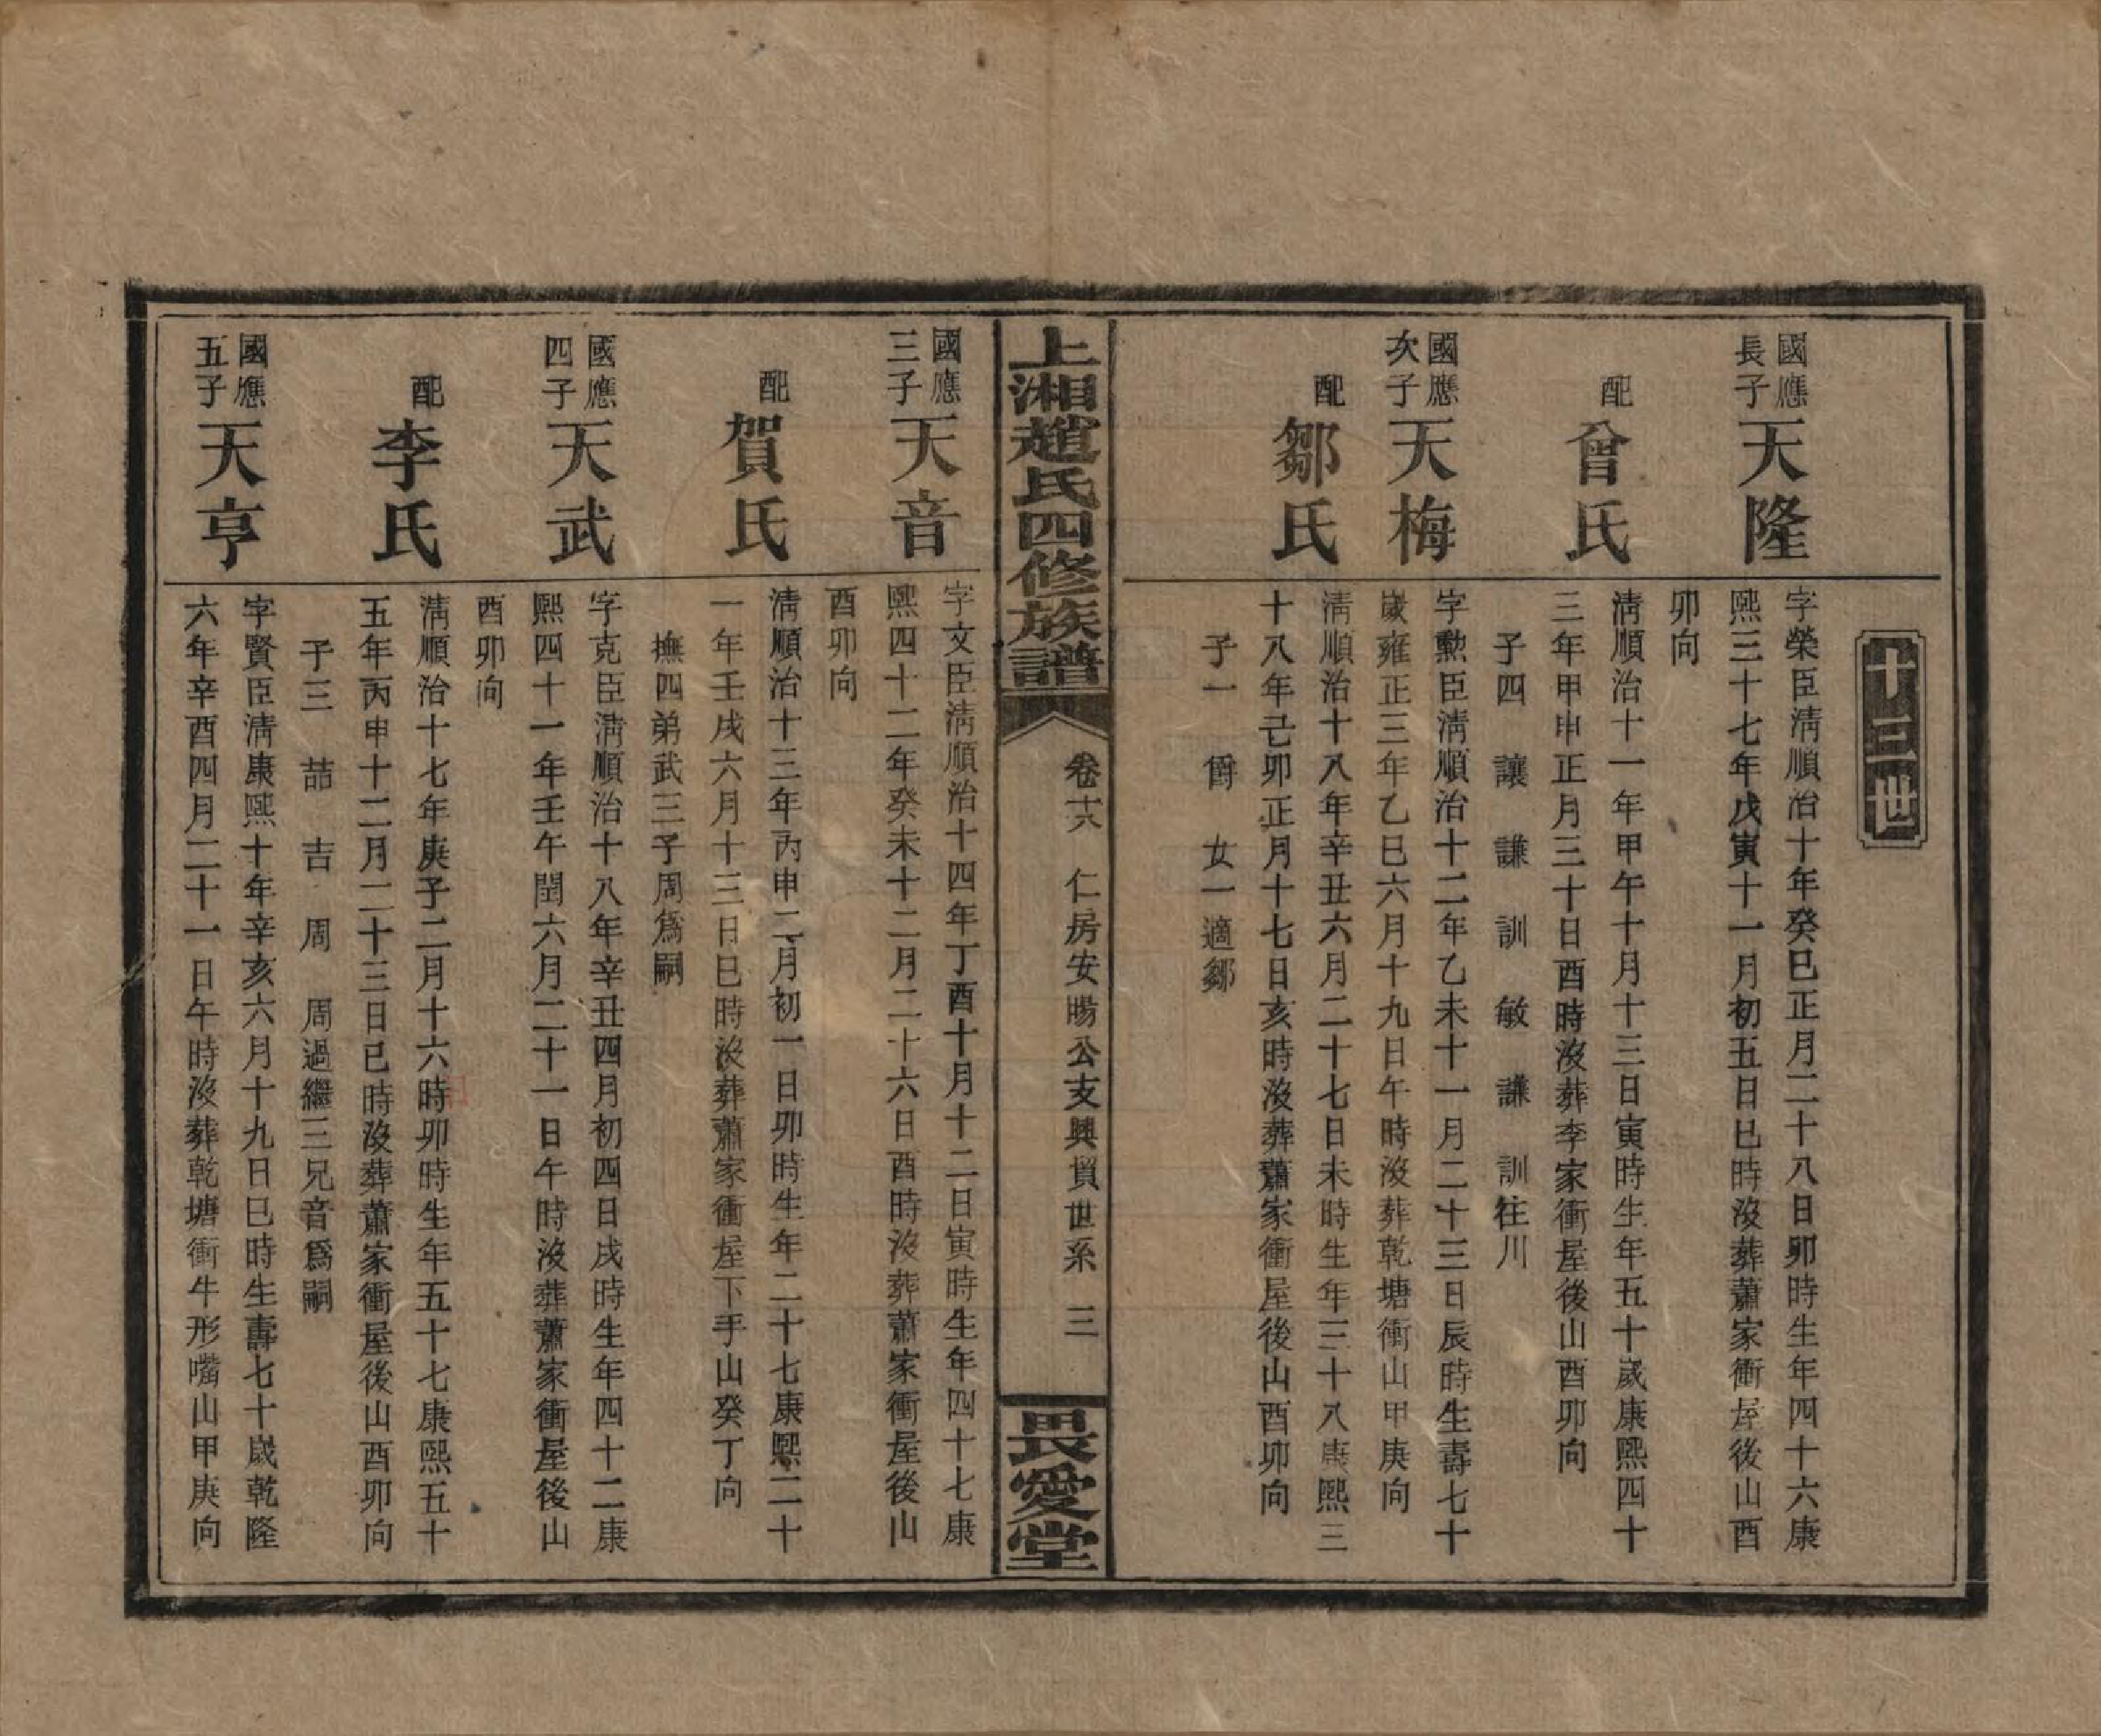 十三世
國應
長子
天隆
字榮臣淸順治十年癸巳正月二十八日卯時生年四十六康
熙三十七年戊寅十一月初五日巳時沒葬蕭家衝屋後山酉
卯向
配
曾氏
淸順治十一年甲午十月十三日寅時生年五十歲康熙四十
三年甲申正月三十日酉時沒葬李家衝屋後山酉卯向
子四 讓 謙 訓 敏 謙 訓往川
國應
次子
天梅
字勳臣淸順治十二年乙未十一月二十三日辰時生壽七十
歲雍正三年乙巳六月十九日午時沒葬乾塘衝山甲庚向
配
鄒氏
淸順治十八年辛丑六月二十七日未時生年三十八康熙三
十八年己卯正月十七日亥時沒葬蕭家衝屋後山酉卯向
子一 爵 女一適鄒
上湘趙氏四修族譜
卷十六 仁房安暘公支興貿世系 三
畏愛堂
國應
三子
天音
字文臣淸順治十四年丁酉十月十二日寅時生年四十七康
熙四十二年癸未十二月二十六日酉時沒葬蕭家衝屋後山
酉卯向
配
賀氏
淸順治十三年丙申二月初一日卯時生年二十七康熙二十
一年壬戌六月十三日巳時沒葬蕭家衝屋下手山癸丁向
撫四弟武三子周爲嗣
國應
四子
天武
字克臣淸順治十八年辛丑四月初四日戌時生年四十二康
熙四十一年壬午閏六月二十一日午時沒葬蕭家衝屋後山
酉卯向
配
李氏
淸順治十七年庚子二月十六時卯時生年五十七康熙五十
五年丙申十二月二十三日巳時沒葬蕭家衝屋後山酉卯向
子三 喆 吉 周 周過繼三兄音爲嗣
國應
五子
天亨
字賢臣淸康熙十年辛亥六月十九日巳時生壽七十歲乾隆
六年辛酉四月二十一日午時沒葬乾塘衝牛形嘴山甲庚向